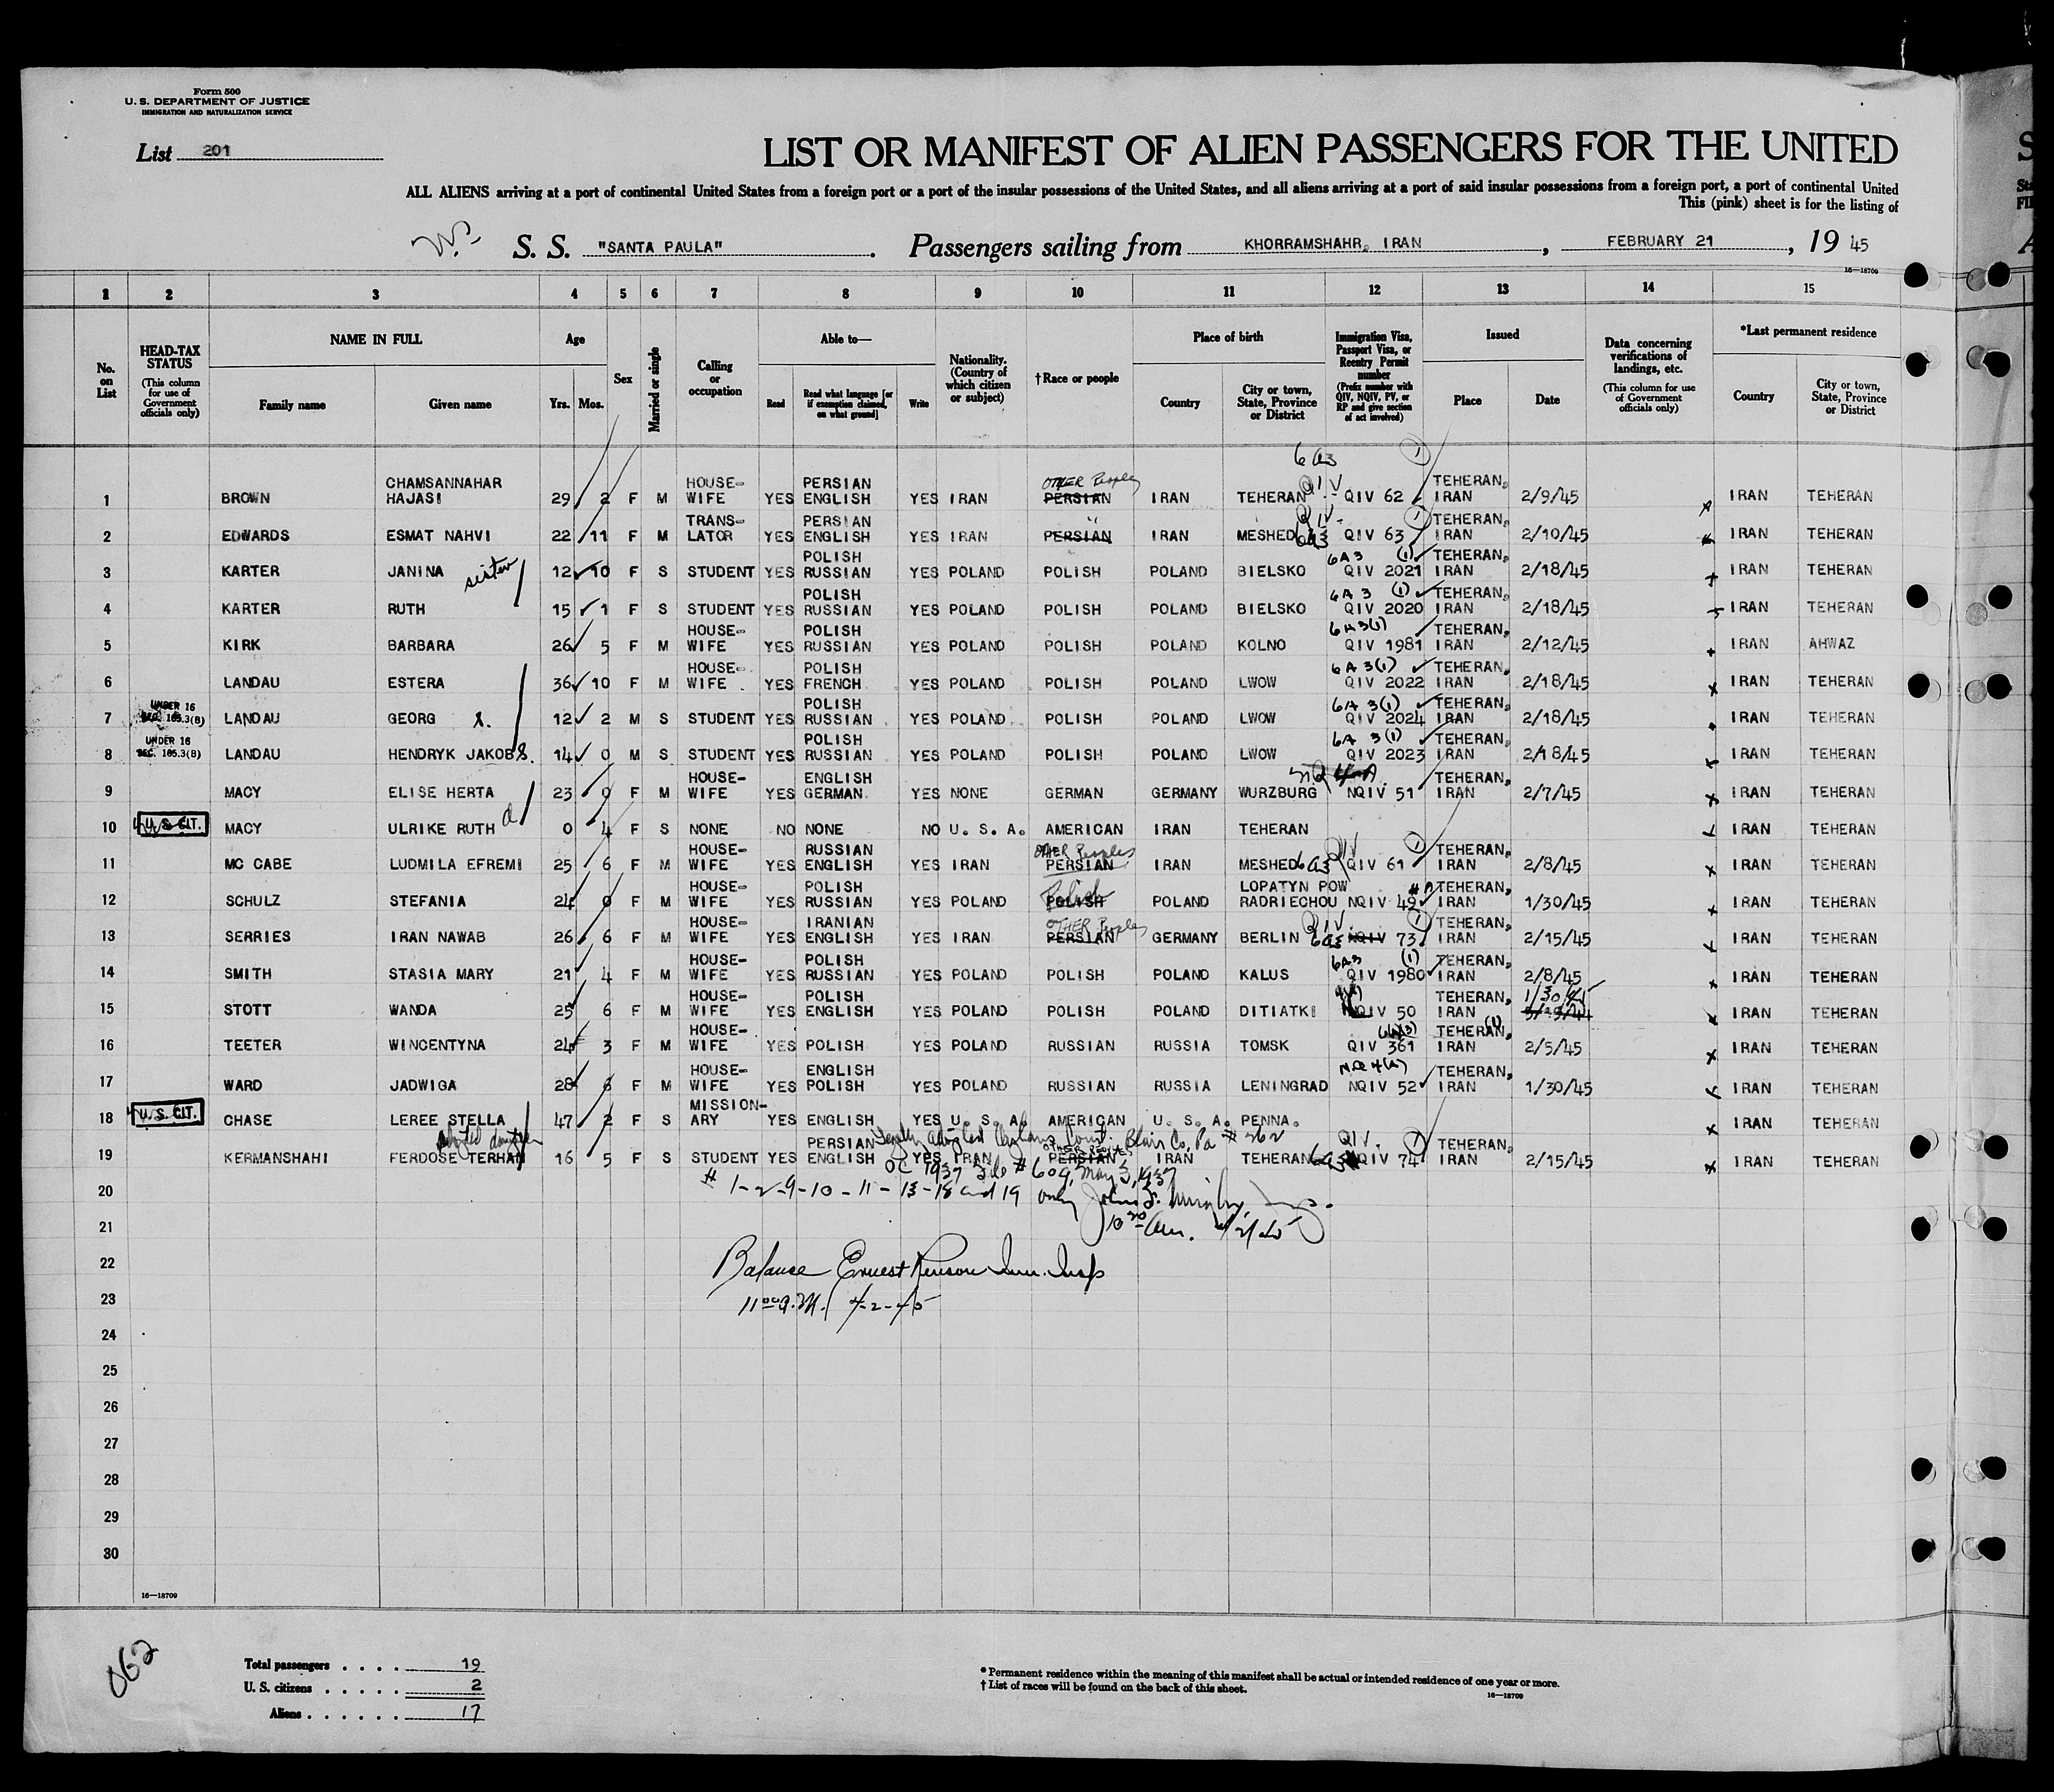 Form 500
U. S. DEPARTMENT OF JUSTICE
IMMIGRATION AND NATURALIZATION SERVICE
List 201
LIST OR MANIFEST OF ALIEN PASSENGERS FOR THE UNITED
ALL ALIENS arriving at a port of continental United States from a foreign port or a port of the insular possessions of the United States, and all aliens arriving at a port of said insular possessions from a foreign port, a port of continental United
This (pink) sheet is for the listing of
S. S. "SANTA PAULA". Passengers sailing from KHORRAMSHAHR, IRAN, FEBRUARY 21, 19 45
16—18709
1 2 3 4 5 6 7 8 9 10 11 12 13 14 15
No. on List
HEAD-TAX STATUS (This column for use of Government officials only)
NAME IN FULL
Family name Given name
Age
Yrs. Mos.
Sex
Married or single
Calling or occupation
Able to—
Read Read what language [or if exemption claimed, on what ground] Write
Nationality. (Country of which citizen or subject)
†Race or people
Place of birth
Country City or town, State, Province or District
Immigration Visa, Passport Visa, or Reentry Permit number (Prefix number with QIV, NQIV, PV, or RP and give section of act involved)
Issued
Place Date
Data concerning verifications of landings, etc. (This column for use of Government officials only)
*Last permanent residence
Country City or town, State, Province or District
1 BROWN CHAMSANNAHAR HAJASI 29 2 F M HOUSE-WIFE YES PERSIAN ENGLISH YES IRAN PERSIAN OTHER Peoples IRAN TEHERAN 6a3 QIV QIV 62 (1) TEHERAN, IRAN 2/9/45 IRAN TEHERAN
2 EDWARDS ESMAT NAHVI 22 11 F M TRANS-LATOR YES PERSIAN ENGLISH YES IRAN PERSIAN " IRAN MESHED 6a3 QIV QIV 63 (1) TEHERAN, IRAN 2/10/45 IRAN TEHERAN
3 KARTER JANINA sister 12 10 F S STUDENT YES POLISH RUSSIAN YES POLAND POLISH POLAND BIELSKO 6A3 (1) QIV 2021 TEHERAN, IRAN 2/18/45 IRAN TEHERAN
4 KARTER RUTH 15 1 F S STUDENT YES POLISH RUSSIAN YES POLAND POLISH POLAND BIELSKO 6A 3 (1) QIV 2020 TEHERAN, IRAN 2/18/45 IRAN TEHERAN
5 KIRK BARBARA 26 5 F M HOUSE-WIFE YES POLISH RUSSIAN YES POLAND POLISH POLAND KOLNO 6A3(1) QIV 1981 TEHERAN, IRAN 2/12/45 IRAN AHWAZ
6 LANDAU ESTERA 36 10 F M HOUSE-WIFE YES POLISH FRENCH YES POLAND POLISH POLAND LWOW 6A 3(1) QIV 2022 TEHERAN, IRAN 2/18/45 IRAN TEHERAN
7 UNDER 16 SEC. 105.3(B) LANDAU GEORG s. 12 2 M S STUDENT YES POLISH RUSSIAN YES POLAND POLISH POLAND LWOW 6A 3(1) QIV 2024 TEHERAN, IRAN 2/18/45 IRAN TEHERAN
8 UNDER 16 SEC. 105.3(B) LANDAU HENDRYK JAKOB s. 14 0 M S STUDENT YES POLISH RUSSIAN YES POLAND POLISH POLAND LWOW 6A 3(1) QIV 2023 TEHERAN, IRAN 2/18/45 IRAN TEHERAN
9 MACY ELISE HERTA 23 0 F M HOUSE-WIFE YES ENGLISH GERMAN YES NONE GERMAN GERMANY WURZBURG NQIV 51 TEHERAN, IRAN 2/7/45 IRAN TEHERAN
10 U. S. CIT. MACY ULRIKE RUTH d 0 4 F S NONE NO NONE NO U. S. A. AMERICAN IRAN TEHERAN IRAN TEHERAN
11 MC CABE LUDMILA EFREMI 25 6 F M HOUSE-WIFE YES RUSSIAN ENGLISH YES IRAN OTHER Peoples PERSIAN IRAN MESHED 6a3 QIV QIV 61 (1) TEHERAN, IRAN 2/8/45 IRAN TEHERAN
12 SCHULZ STEFANIA 24 0 F M HOUSE-WIFE YES POLISH RUSSIAN YES POLAND Polish POLISH POLAND LOPATYN POW RADRIECHOU NQIV 49 TEHERAN, IRAN 1/30/45 IRAN TEHERAN
13 SERRIES IRAN NAWAB 26 6 F M HOUSE-WIFE YES IRANIAN ENGLISH YES IRAN OTHER Peoples PERSIAN GERMANY BERLIN 6a3 QIV NQIV 73 (1) TEHERAN, IRAN 2/15/45 IRAN TEHERAN
14 SMITH STASIA MARY 21 4 F M HOUSE-WIFE YES POLISH RUSSIAN YES POLAND POLISH POLAND KALUS 6A3 (1) QIV 1980 TEHERAN, IRAN 2/8/45 IRAN TEHERAN
15 STOTT WANDA 25 6 F M HOUSE-WIFE YES POLISH ENGLISH YES POLAND POLISH POLAND DITIATKI NQIV 50 TEHERAN, IRAN 1/30/45 IRAN TEHERAN
16 TEETER WINCENTYNA 24 3 F M HOUSE-WIFE YES POLISH YES POLAND RUSSIAN RUSSIA TOMSK 6(A)(3) (1) QIV 361 TEHERAN, IRAN 2/5/45 IRAN TEHERAN
17 WARD JADWIGA 28 6 F M HOUSE-WIFE YES ENGLISH POLISH YES POLAND RUSSIAN RUSSIA LENINGRAD NQ 4(A) NQIV 52 TEHERAN, IRAN 1/30/45 IRAN TEHERAN
18 U. S. CIT. CHASE LEREE STELLA 47 2 F S MISSION-ARY YES ENGLISH YES U. S. A. AMERICAN U. S. A. PENNA. IRAN TEHERAN
adopted daughter Legally adopted Orphans Court. Blair Co, Pa # 262
19 KERMANSHAHI FERDOSE TERHAN 16 5 F S STUDENT YES PERSIAN ENGLISH YES IRAN OTHER PEOPLES PERSIAN IRAN TEHERAN 6a3 QIV. NQIV 74 (1) TEHERAN, IRAN 2/15/45 IRAN TEHERAN
OC 1937 File # 609, May 3, 1937
20 # 1-2-9-10-11-13-18 and 19 only John F. Murphy, Insp.
21 10 30 Am. 4/2/45
22 Balance Ernest Renson Imm. Insp
23 11 00 A.M. 4-2-45
24
25
26
27
28
29
30
16—18709
062
Total passengers . . . . 19
U. S. citizens . . . . . 2
Aliens . . . . . . 17
* Permanent residence within the meaning of this manifest shall be actual or intended residence of one year or more.
† List of races will be found on the back of this sheet.
16—18709